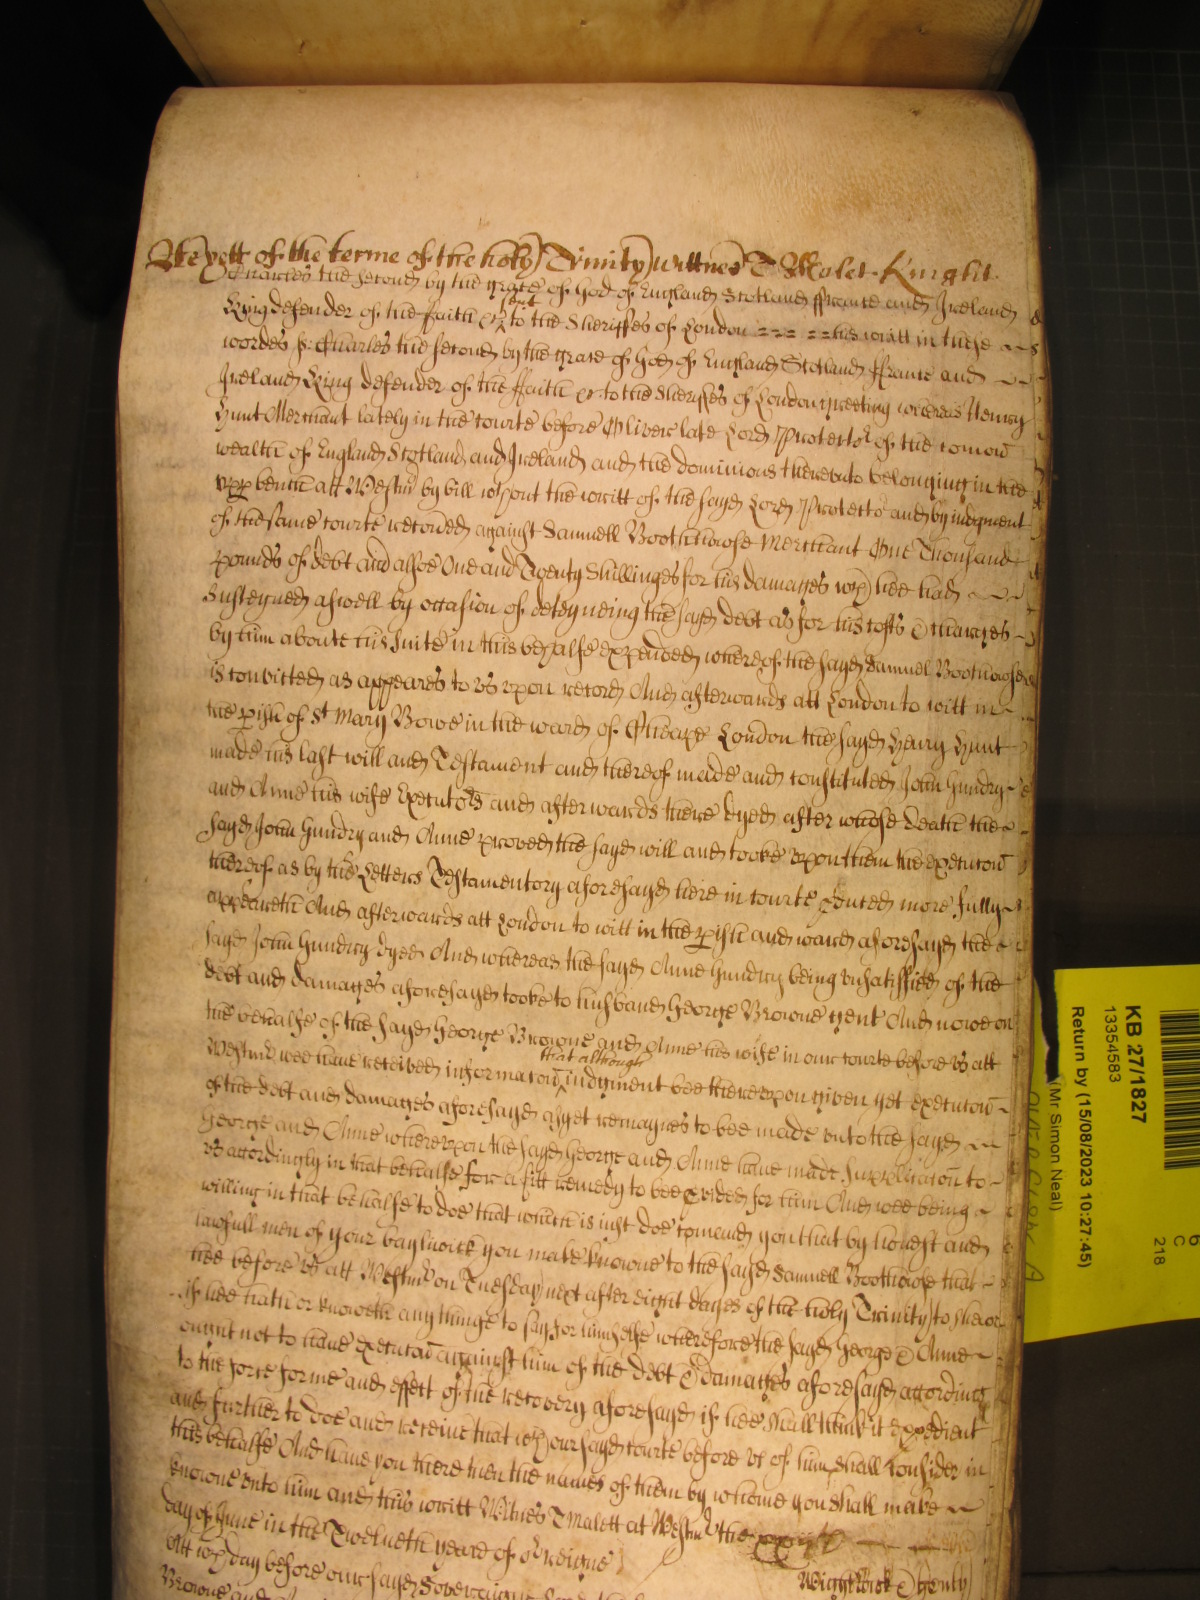 As yett of the terme of the holy Trinity wittnes T Malet Knight.
Charles the second by the grace of God of England Scotland ffrance and Ireland
King defender of the ffaith &c sent to the Sheriffes of London his writt in these
wordes ss: Charles the second by the grace of God of England Scotland ffrance and
Ireland King defender of the ffaith &c to the Sheriffes of London greeting whereas Henry
Hunt Merchant lately in the courte before Oliver late Lord Protector of the comon
wealth of England Scotland and Ireland and the dominions thereunto belonging in the
upp bench att Westmr by bill wthout the writt of the sayd Lord Protector and by iudgment
of the same courte recoued against Samuell Boothhowse Merchant One Thousand
pounds of debt and alsoe One and Twenty Shillinges for his damages wch hee had
susteyned aswell by occasion of deteyneing the sayd debt as for his costs & charges
by him aboute his suite in this behalfe expended whereof the sayd Samuel Boothhowse
is convicted as appeares to vs vpon record And afterwards att London to witt in
the pish of St Mary Bowe in the ward of Cheape London the sayd Henry Hunt
made his last will and Testament and thereof made and constituted John Hundry
and Anne his wife Executors and afterwards there dyed after whose death the
sayd John Hundry and Anne proved the sayd will and tooke vpon them the execucon
thereof as by the Letters Testamentory aforesayd here in courte pduced more fully
appeareth And afterwards att London to witt in the pish and ward aforesayd the
sayd John Hundry dyed And whereas the sayd Anne Hundry being vnsatisfied of the
debt and damages aforesayd tooke to husband George Browne gent And nowe on
the behalfe of the sayd George Browne and Anne his wife in our courte before vs att
Westmr wee have received informacon that although iudgment bee thereupon given yet execucon
of the debt and damages aforesayd as yet remaynes to bee made unto the sayd
George and Anne whereupon the sayd George and Anne have made supplicacon to
vs accordingly in that behalfe for a fitt remedy to bee pvided for him And wee being
willing in that behalfe to doe that which is iust doe comend you that by honest and
lawfull men of your baylwick you make knowne to the sayd Samuell Boothhowse that
hee before vs att Westmr on Tuesday next after eight dayes of the holy Trinity to shew
if hee hath or knoweth any thinge to say for himselfe wherefore the sayd George & Anne
ought not to have execucon against him of the debt & damages aforesayd according
to the force forme and effect of the recovery aforesayd if hee shall thinke it expedient
and further to doe and receive that wch our sayd courte before vs of him shall consider in
this behalfe And have you there then the names of them by whome you shall make
knowne vnto him and this writt Witnes T Malett at Westmr the
day of June in the Twelueth yeare of or Reigne
Wightwick & Henly
Att wch day before our sayd Sovereigne
Browne and
KB 27/1827
13354583
Return by (15/08/2023 10:27:45)
(Mr Simon Neal)
6
C
218